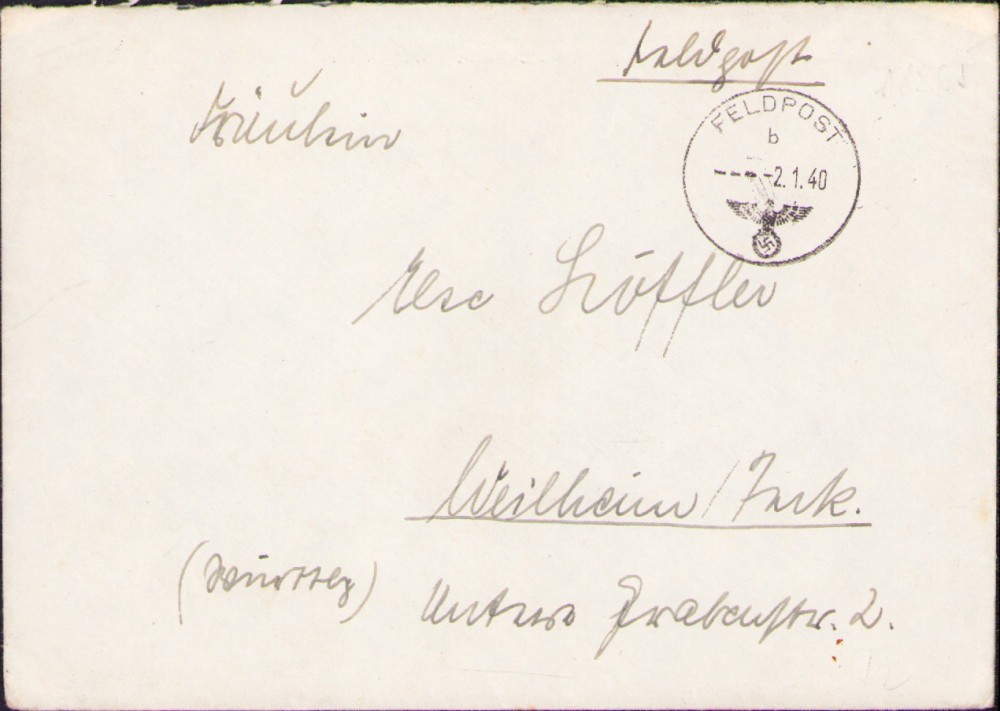 Feldpost
FELDPOST
b
-2.1.40
Fräulein
Else Löffler
Weilheim/Teck.
(Württbg)
Untere Grabenstr. 2.